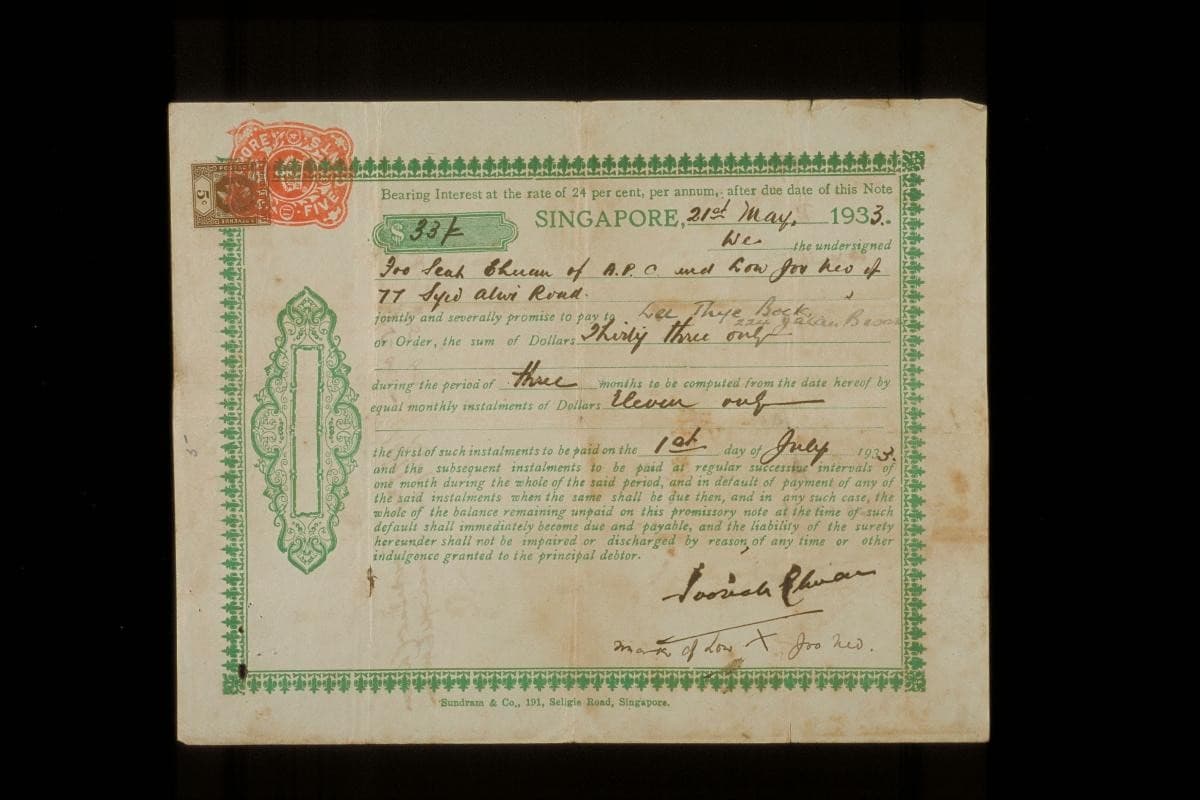 5c
FIVE
Bearing Interest at the rate of 24 per cent, per annum, after due date of this Note
$ 33/-
SINGAPORE, 21st May, 1933.
We the undersigned
Soo Seah Chuan of A.P.C. and Low Joo Neo of
77 Syed Alwi Road.
jointly and severally promise to pay to Lee Thye Bock,
224 Jalan Besar
or Order, the sum of Dollars Thirty three only
during the period of three months to be computed from the date hereof by
equal monthly instalments of Dollars Eleven only
the first of such instalments to be paid on the 1st day of July 1933.
and the subsequent instalments to be paid at regular successive intervals of
one month during the whole of the said period, and in default of payment of any of
the said instalments when the same shall be due then, and in any such case, the
whole of the balance remaining unpaid on this promissory note at the time of such
default shall immediately become due and payable, and the liability of the surety
hereunder shall not be impaired or discharged by reason of any time or other
indulgence granted to the principal debtor.
Soo Seah Chuan
Mark of Low X Joo Neo.
Sundram & Co., 191, Seligie Road, Singapore.